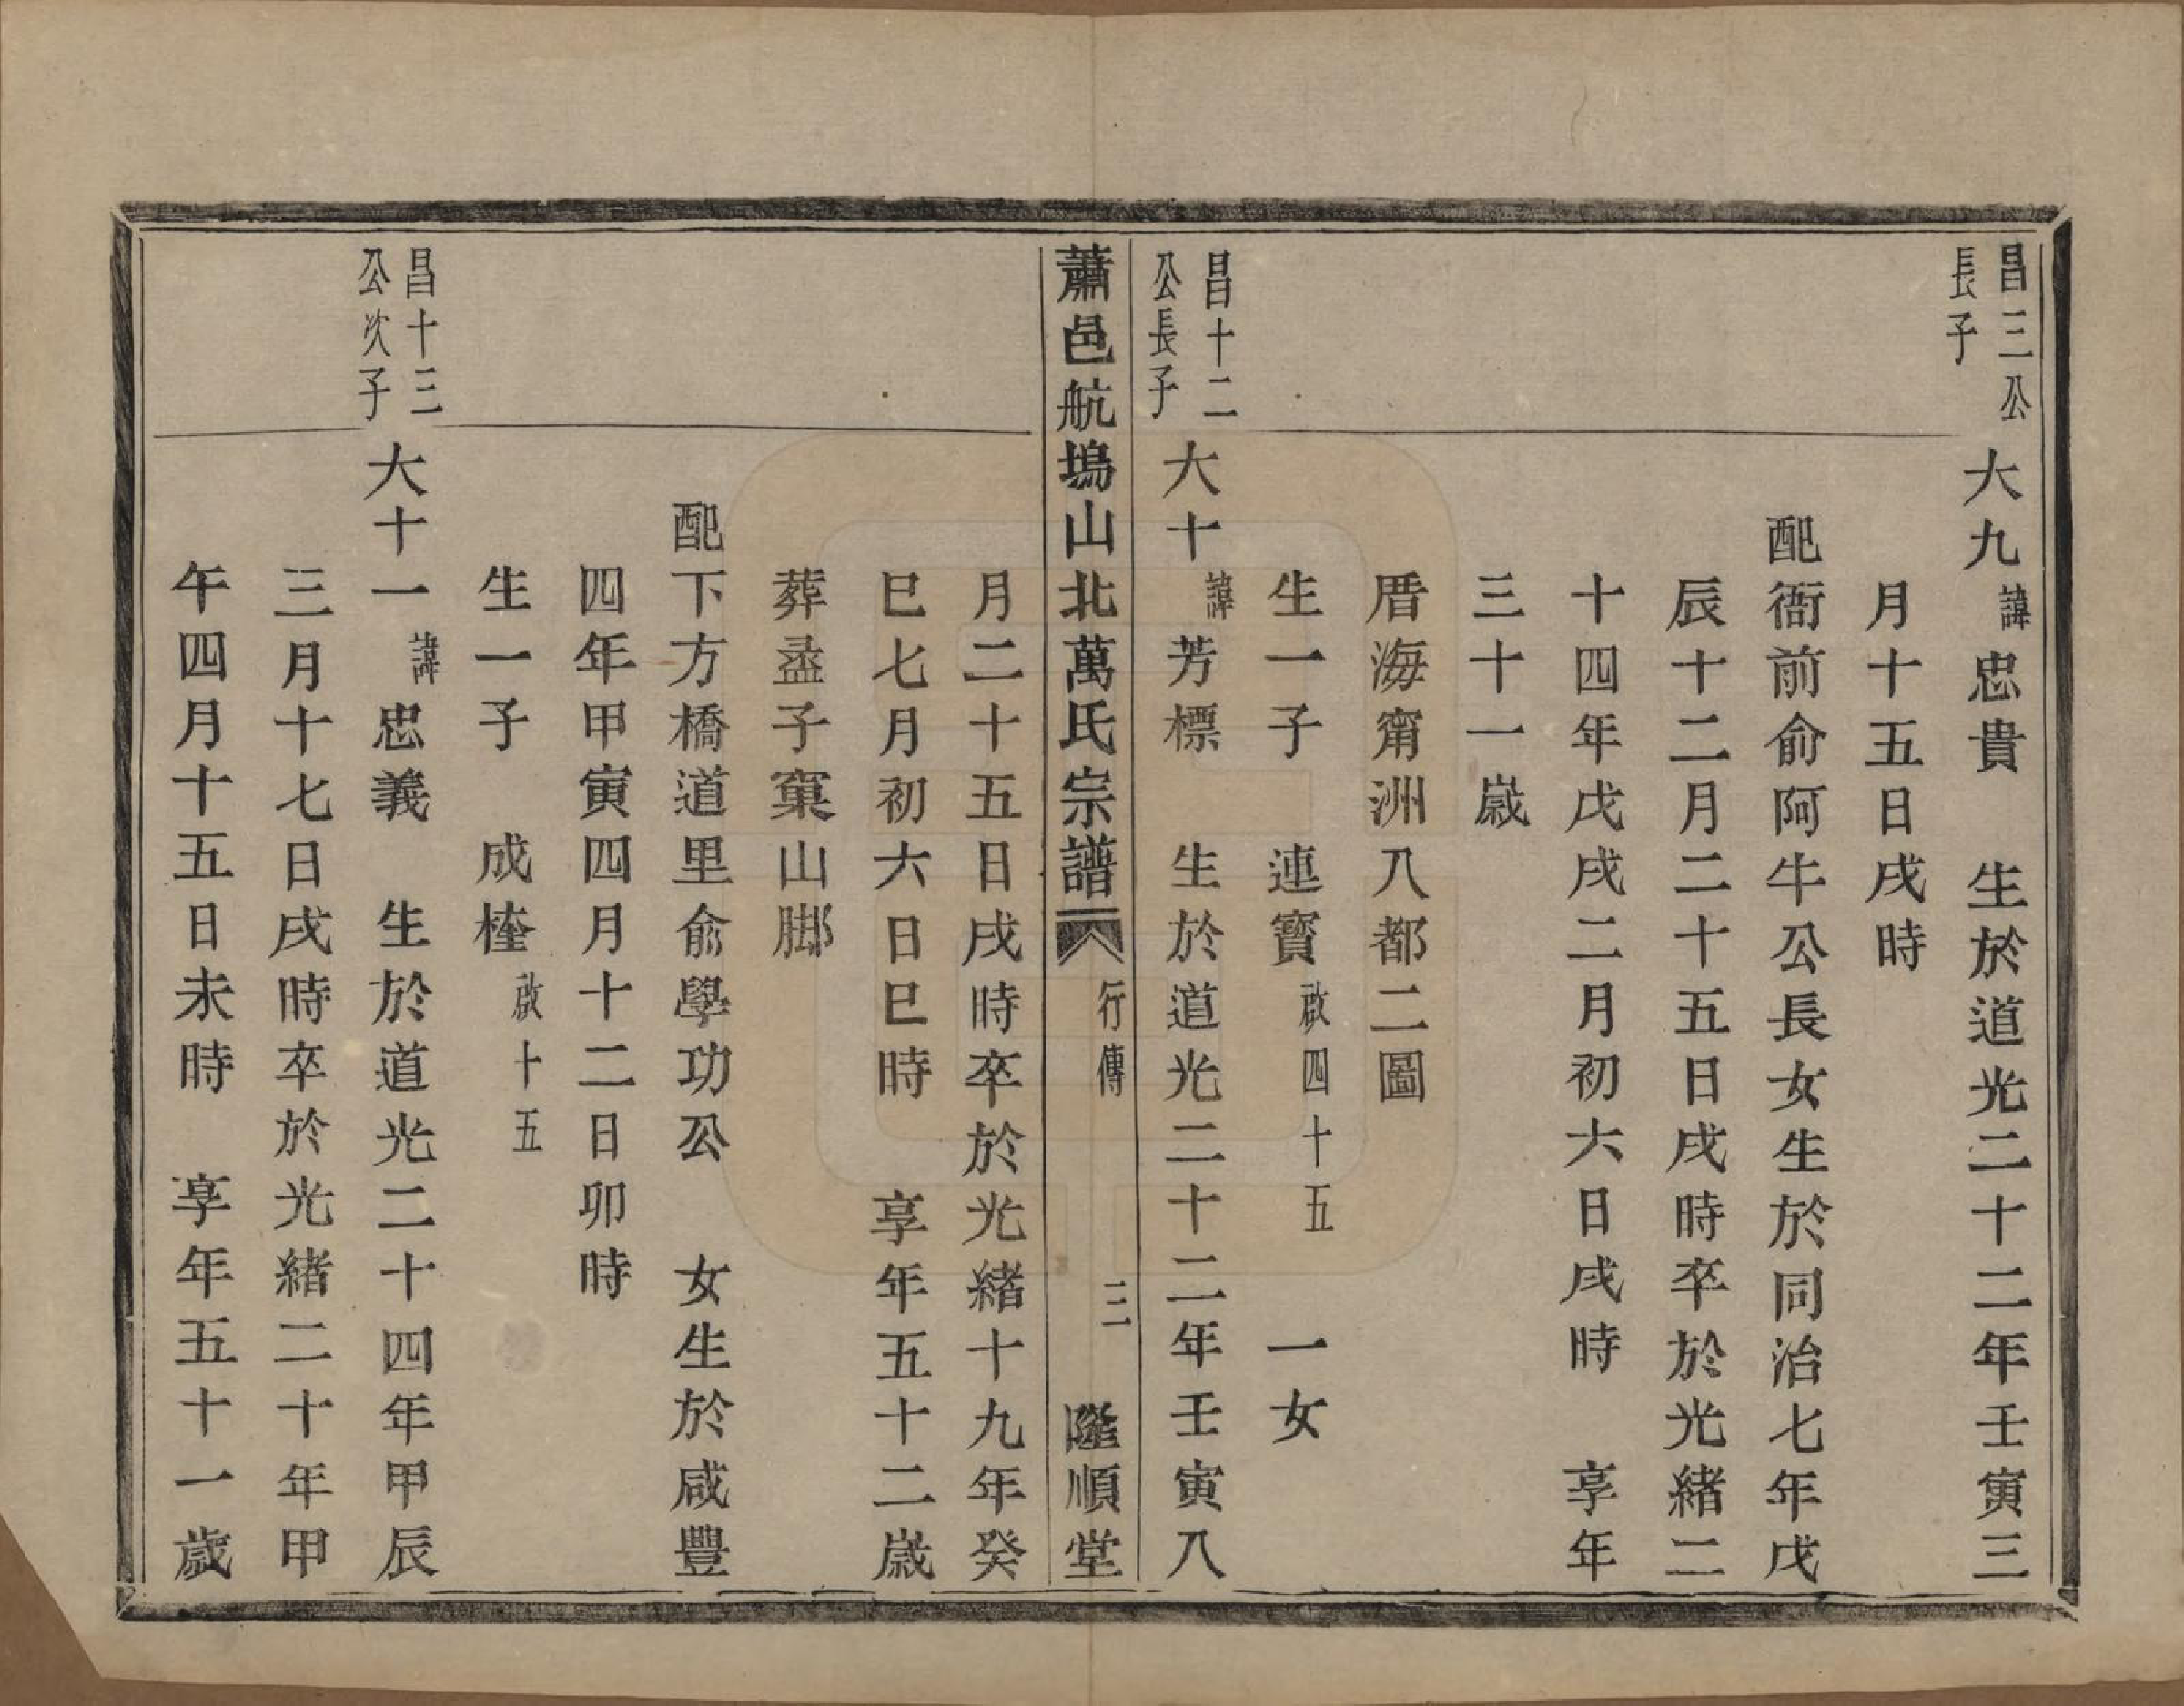 昌三公
長子
大九諱忠貴　生於道光二十二年壬寅三
月十五日戌時
配衙前俞阿牛公長女生於同治七年戊
辰十二月二十五日戌時卒於光緒二
十四年戊戌二月初六日戌時　享年
三十一歲
厝海甯洲八都二圖
生一子　連寶啟四十五　一女
昌十二
公長子
大十諱芳標　生於道光二十二年壬寅八
蕭邑航塢山北萬氏宗譜　行傳　三　隆順堂
月二十五日戌時卒於光緒十九年癸
巳七月初六日巳時　享年五十二歲
葬盋子窠山腳
配下方橋道里俞學功公　女生於咸豐
四年甲寅四月十二日卯時
生一子　成𣚴啟十五
昌十三
公次子
大十一諱忠義　生於道光二十四年甲辰
三月十七日戌時卒於光緒二十年甲
午四月十五日未時　享年五十一歲